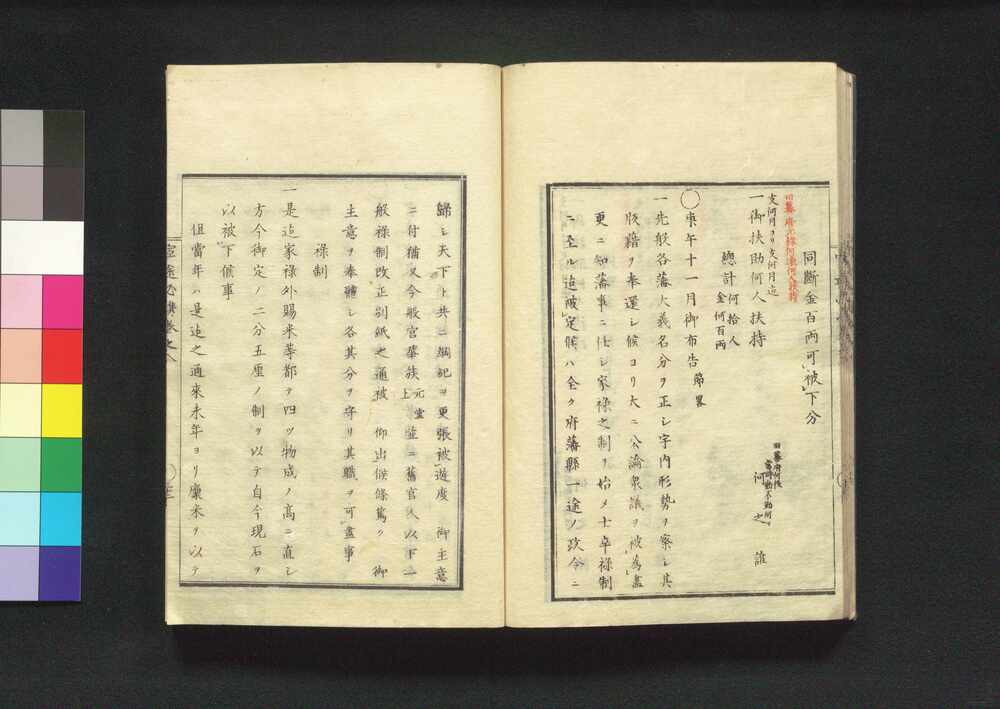 同断金百両可被下分
旧幕府何役
当時勤不勤何ノ
何之誰
支何月ヨリ支何月迄
一御扶助何人扶持
総計何拾人
金何百両
庚午十一月御布告節略
一先般各藩大義名分ヲ正シ宇内形勢ヲ察シ其
版籍ヲ奉還シ候ヨリ大ニ公論衆議ヲ被為盡
更ニ知藩事ニ任シ家禄之制ヲ始メ士卒禄制
ニ至ル迄被定候ハ全ク府藩縣一途ノ政令ニ
歸シ天下ト共ニ綱紀ヲ更張被遊度 御主意
ニ付猶又今般宮華族元堂上並ニ舊官人以下一
般禄制改正別紙之通被 仰出候條篤ク 御
主意ヲ奉體シ各其分ヲ守リ其職ヲ可盡事
禄制
一是迄家禄外賜米等都テ四ツ物成ノ高ニ直シ
方今御定ノ二分五厘ノ制ヲ以テ自今現石ヲ
以被下候事
但當年ハ是迄之通來未年ヨリ廩米ヲ以テ